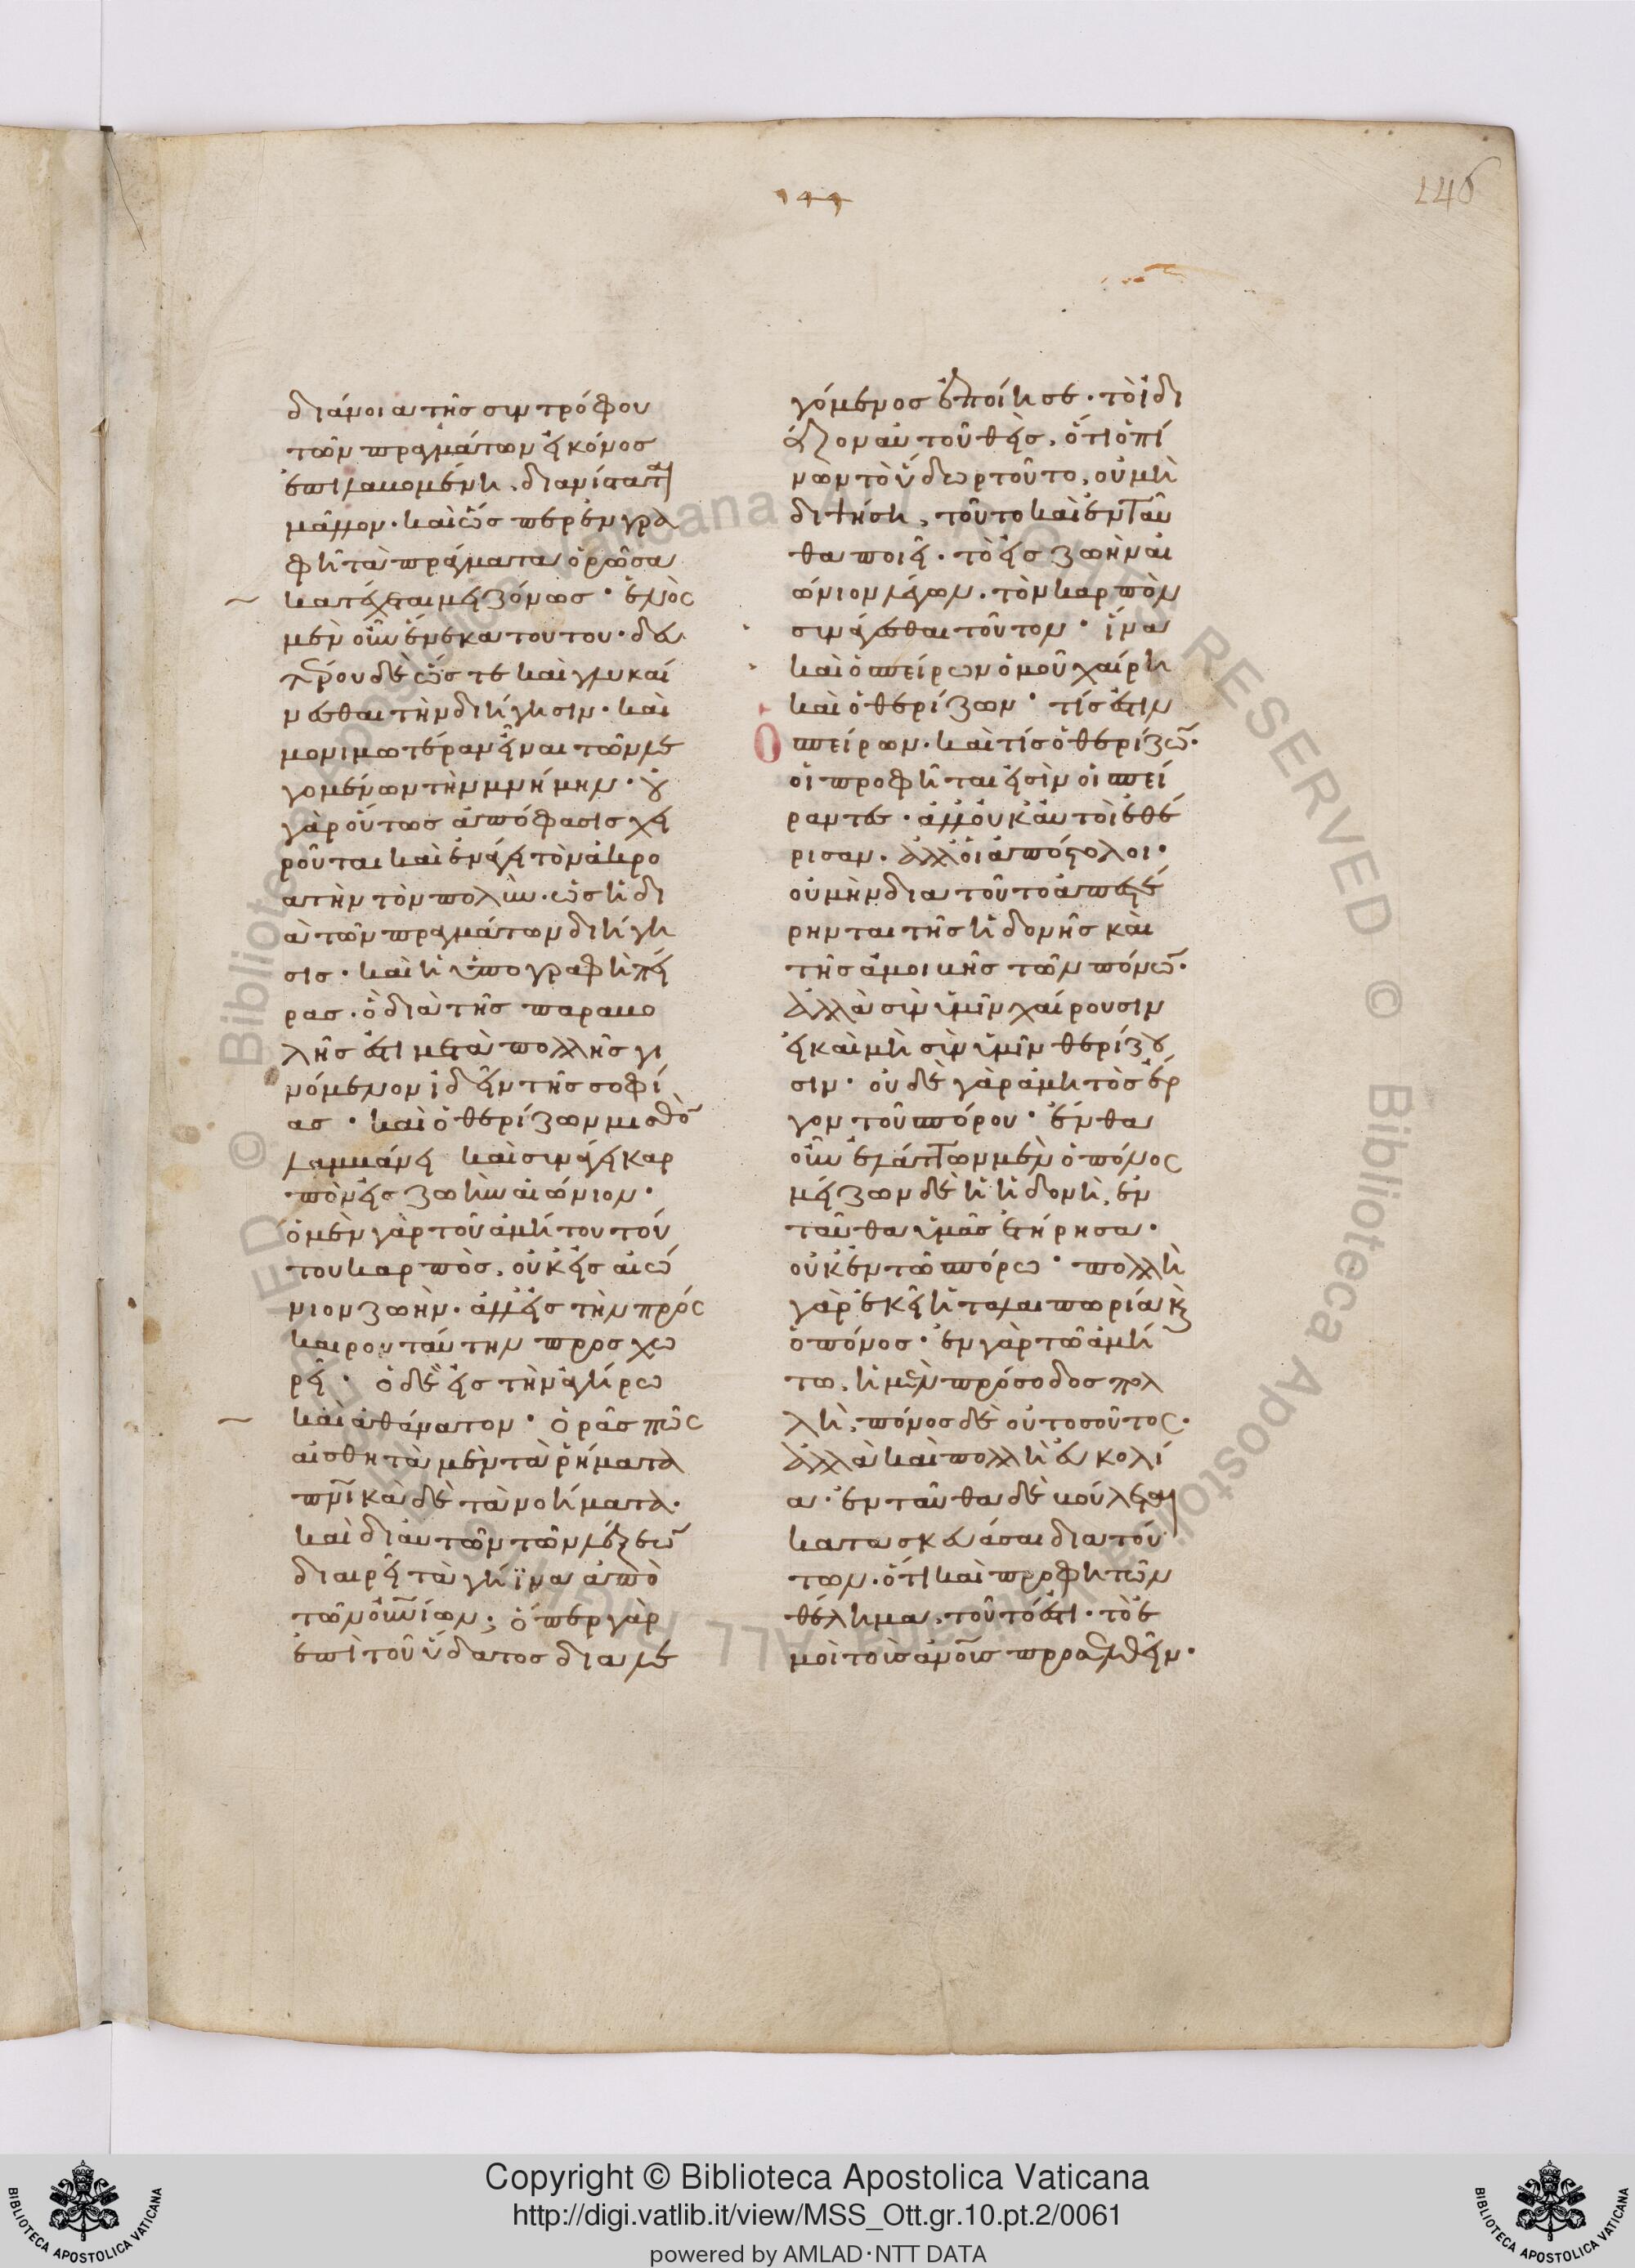 144
146
διάνοια τῆς συντρόφου
τῶν πραγμάτων εἰκόνος
ἐπιλαβομένη, διανίσταται
μᾶλλον· καὶ ὥσπερ ἐν γρα
φῇ τὰ πράγματα ὁρῶσα
κατέχεται μειζόνως· ἑνὸς
μὲν οὖν ἕνεκα τούτου· δευ
τέρου δὲ ὥστε καὶ γλυκαί
νεσθαι τὴν διήγησιν· καὶ
μονιμωτέραν εἶναι τῶν λε
γομένων τὴν μνήμην· οὐ
γὰρ οὕτως ἀπόφασις χει
ροῦται καὶ ἐνάγει τὸν ἀκρο
ατὴν τὸν πολὺν· ὡς ἡ δι
ὰ τῶν πραγμάτων διήγη
σις· καὶ ἡ ὑπογραφὴ πεί
ρας· ὃ διὰ τῆς παραβο
λῆς ἐστι μετὰ πολλῆς γι
νόμενον ἰδεῖν τῆς σοφί
ας· καὶ ὁ θερίζων μισθὸν
λαμβάνει καὶ συνάγει καρ
πὸν εἰς ζωὴν αἰώνιον·
ὁ μὲν γὰρ τοῦ ἀμήτου τού
του καρπὸς, οὐκ εἰς αἰώ
νιον ζωὴν· ἀλλ' εἰς τὴν πρός
καιρον ταύτην προσχω
ρεῖ· ὁ δὲ εἰς τὴν ἀγήρω
καὶ ἀθάνατον· ὁρᾷς πῶς
αἰσθητὰ μὲν τὰ ῥήματα
πνικὰ δὲ τὰ νοήματα·
καὶ δι' αὐτῶν τῶν λέξεων
διαιρεῖ τὰ γήϊνα ἀπὸ
τῶν οὐνίων; ὅπερ γὰρ
ἐπὶ τοῦ ὕδατος διαλε
γόμενος ἐποίησε· τὸ ἰδι
άζον αὐτοῦ θεὶς, ὅτι ὁ πί
νων τὸ ὕδωρ τοῦτο, οὐ μὴ
διψήσῃ, τοῦτο καὶ ἐνταῦ
θα ποιεῖ· τὸ εἰς ζωὴν αἰ
ώνιον λέγων· τὸν καρπὸν
συνάγεσθαι τοῦτον· ἵνα
καὶ ὁ σπείρων ὁμοῦ χαίρῃ
καὶ ὁ θερίζων· τίς ἐστιν
Ὁ σπείρων· καὶ τίς ὁ θερίζων·
οἱ προφῆταί εἰσιν οἱ σπεί
ραντες· ἀλλ' οὐκ αὐτοὶ ἐθέ
ρισαν· ἀλλ' οἱ ἀπόστολοι·
οὐ μὴν διὰ τοῦτο ἀπεστέ
ρηνται τῆς ἡδονῆς καὶ
τῆς ἀμοιβῆς τῶν πόνων·
ἀλλὰ σὺν ὑμῖν χαίρουσιν
εἰ καὶ μὴ σὺν ὑμῖν θερίζου
σιν· οὐδὲ γὰρ ἀμητὸς ἔρ
γον τοῦ σπόρου· ἔνθα
οὖν ἐλάττων μὲν ὁ πόνος
μείζων δὲ ἡ ἡδονὴ, ἐν
ταῦθα ὑμᾶς ἐτήρησα·
οὐκ ἐν τῷ σπόρω· πολλὴ
γὰρ ἐκεῖ ἡ ταλαιπωρία καὶ
ὁ πόνος· ἐν γὰρ τῷ ἀμή
τω, ἡ μὲν πρόσοδος πολ
λὴ, πόνος δὲ οὐ τοσοῦτος·
ἀλλὰ καὶ πολλὴ εὐκολί
α· ἐνταῦθα δὲ βούλεται
κατασκευάσαι διὰ τού
των· ὅτι καὶ προφητῶν
θέλημα, τοῦτό ἐστι· τὸ ἐ
μοὶ τοὺς ἀνους προσελθεῖν·
Copyright © Biblioteca Apostolica Vaticana
http://digi.vatlib.it/view/MSS_Ott.gr.10.pt.2/0061
powered by AMLAD·NTT DATA
BIBLIOTECA APOSTOLICA VATICANA
BIBLIOTECA APOSTOLICA VATICANA